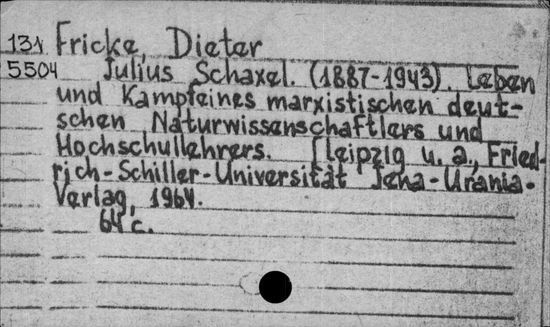 131 Fricke, Dieter
5504 Julius Schaxel. (1887-1943). Leben
und Kampfeines marxistischen deut-
schen Naturwissenschaftlers und
Hochschullehrers. [Leipzig u. a., Fried-
rich-Schiller-Universität Jena-Urania-
Verlag, 1964.
64 c.